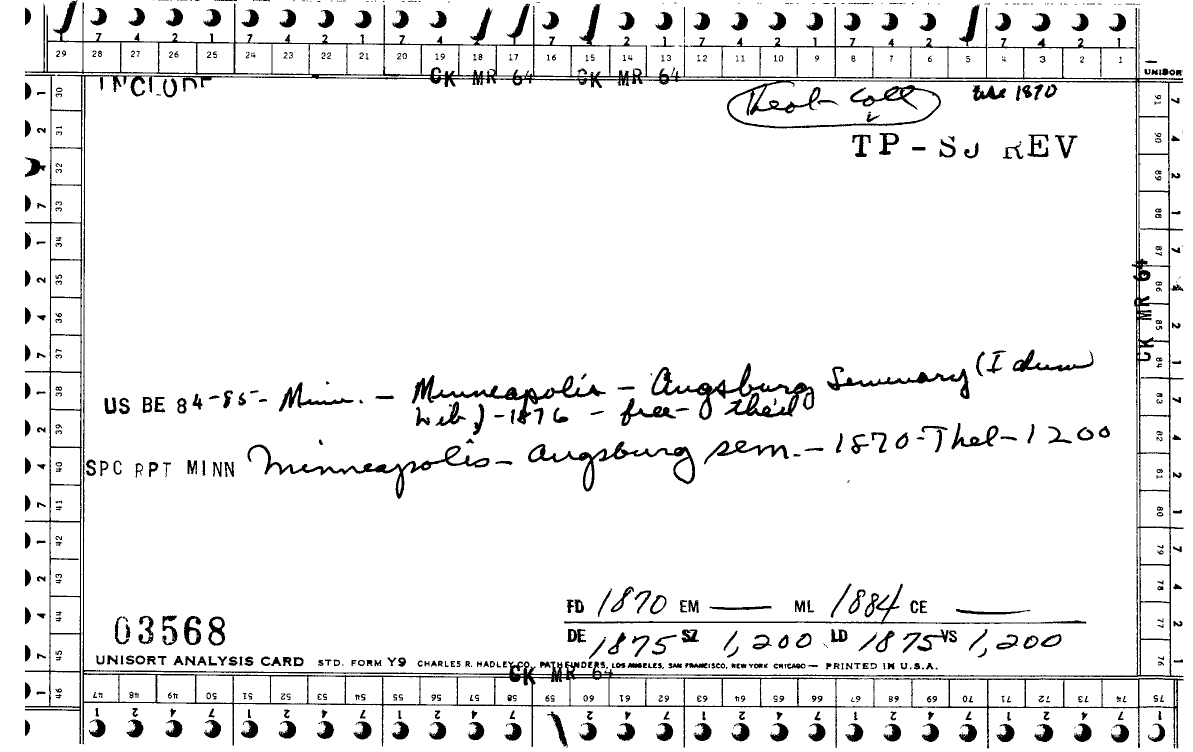 7 4 2 1 7 4 2 1 7 2 1 7 4 2 1 7 4 2 1 7 4 2 1
29 28 27 26 25 24 23 22 21 20 19 18 17 16 15 14 13 12 11 10 9 8 7 6 5 4 3 2 1
CK MR 64 CK MR 64
UNISORT
INCLUDE
Theol- Coll
use 1870
TP - SJ REV
CK MR 64
US BE 84-85- Minn. - Minneapolis - Augsburg Seminary (Idum
Lib.) - 1876 - free - theol
SPC RPT MINN Minneapolis - Augsburg sem. - 1870 - Thel - 1200
FD 1870 EM — ML 1884 CE —
03568
DE 1875 SZ 1,200 LD 1875 VS 1,200
UNISORT ANALYSIS CARD STD. FORM Y9 CHARLES R. HADLEY CO., PATHFINDERS, LOS ANGELES, SAN FRANCISCO, NEW YORK CHICAGO — PRINTED IN U.S.A.
CK MR 64
47 48 49 50 51 52 53 54 55 56 57 58 59 60 61 62 63 64 65 66 67 68 69 70 71 72 73 74 75